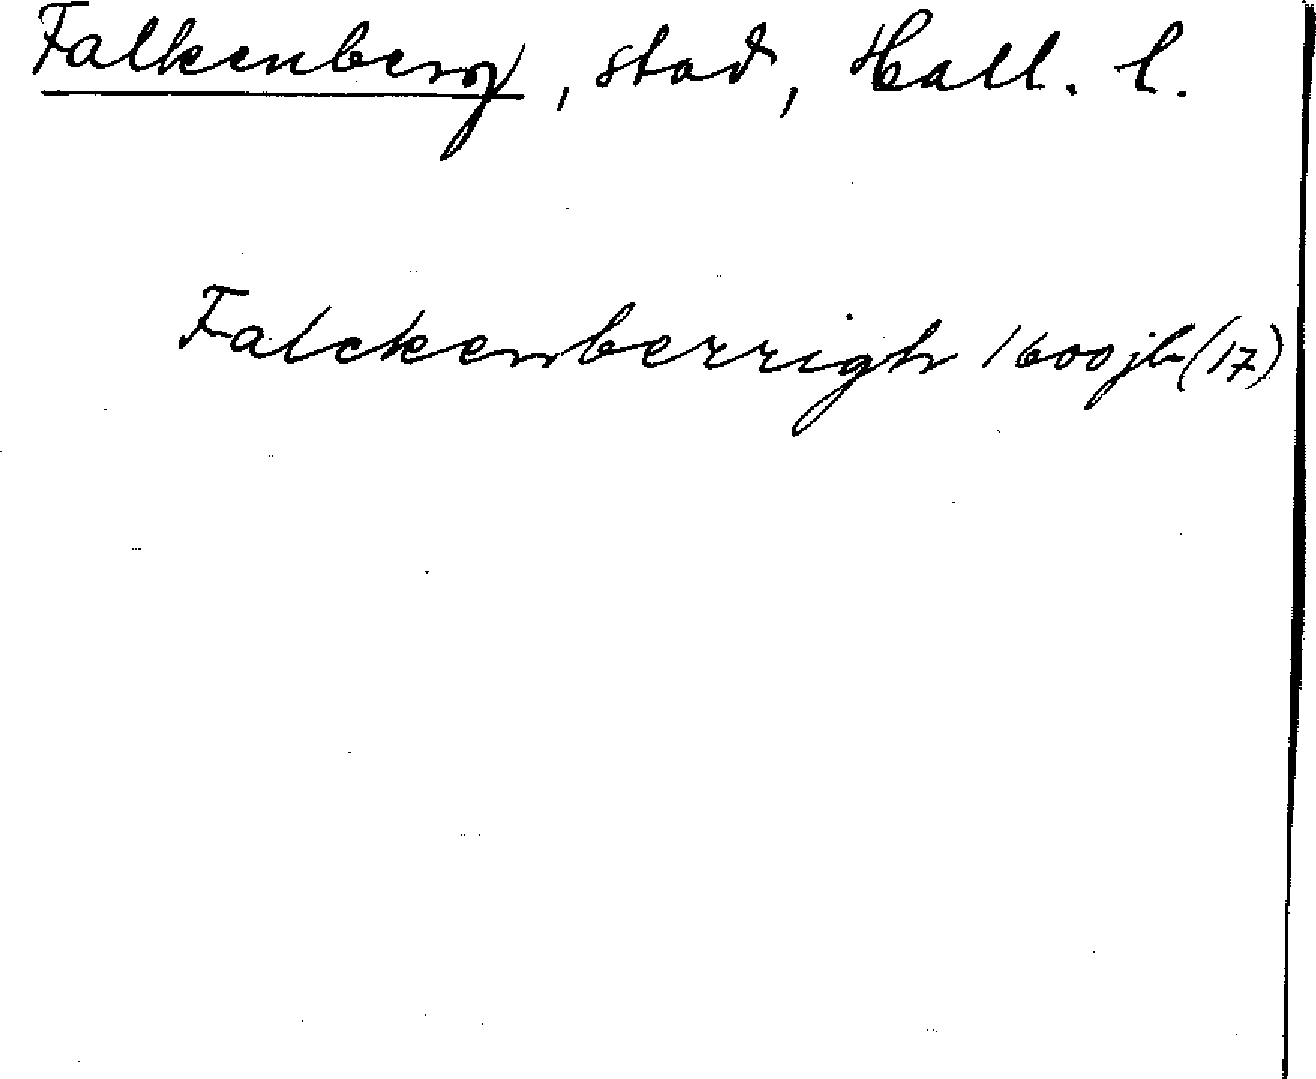 Falkenberg, stad, Hall. l.
Falckenberrigh 1600 jb (17)